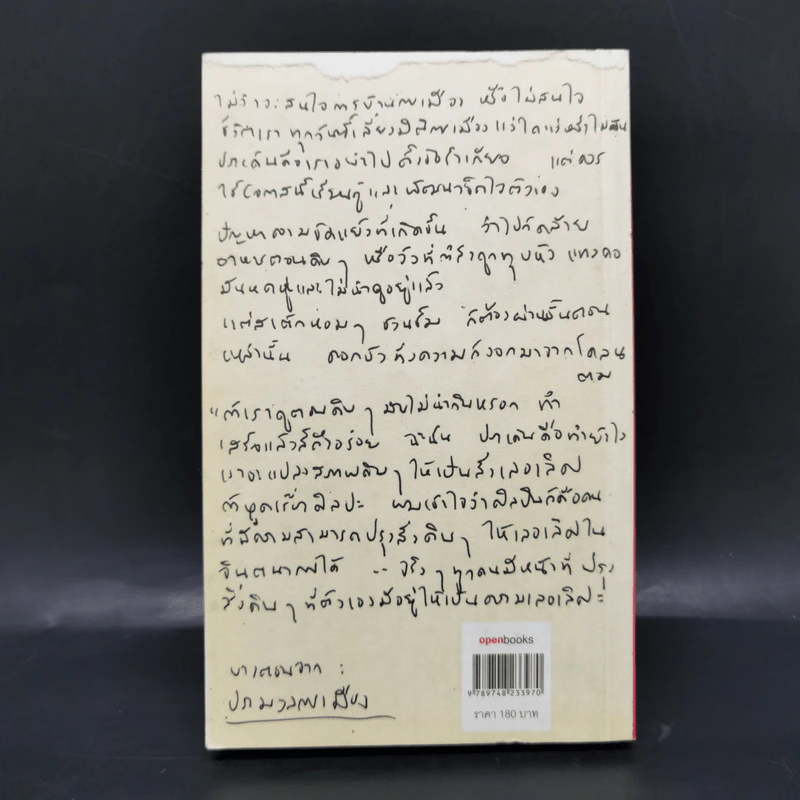 ไม่ว่าจะสนใจการบ้านการเมือง หรือไม่สนใจ
ชีวิตเรา ทุกวันนี้เลี่ยงมิติการเมือง
ประเด็นคือเราอย่าไปตั้งข้อรังเกียจ แต่ควร
ใช้โอกาสนี้เรียนรู้และพัฒนาจิตใจตัวเอง
ปัญหาความขัดแย้งที่เกิดขึ้น ว่าไปก็คล้าย
อาหารตอนดิบๆ หรือวัวที่กำลังถูกทุบหัว แทงคอ
มันหดหู่และไม่น่าดูอยู่แล้ว
แต่สเต๊กหอมๆ ชวนชิม ก็ต้องผ่านขั้นตอน
เหล่านั้น ดอกบัว ทั้งความ ออกมาจากโคลน
ตม
"ถ้าเราดูตอนดิบๆ มันไม่น่ากินหรอก ทำ
เสร็จแล้วก็ถึงอร่อย ฉะนั้น ประเด็นคือทำยังไง
เราจะแปลงสภาพดิบๆ ให้เป็นสิ่งเลอเลิศ
ถ้าพูดเรื่องศิลปะ ผมเข้าใจว่าศิลปินก็คือคน
ที่มีความสามารถปรุงสิ่งดิบๆ ให้เลอเลิศใน
จินตนาการได้ -- จริงๆ ทุกคนมีหน้าที่ ปรุง
สิ่งดิบๆ ที่ตัวเองมีอยู่ให้เป็นความเลอเลิศ
บางตอนจาก :
ปรามาจารย์เมือง
openbooks
9 789748 233970
ราคา 180 บาท